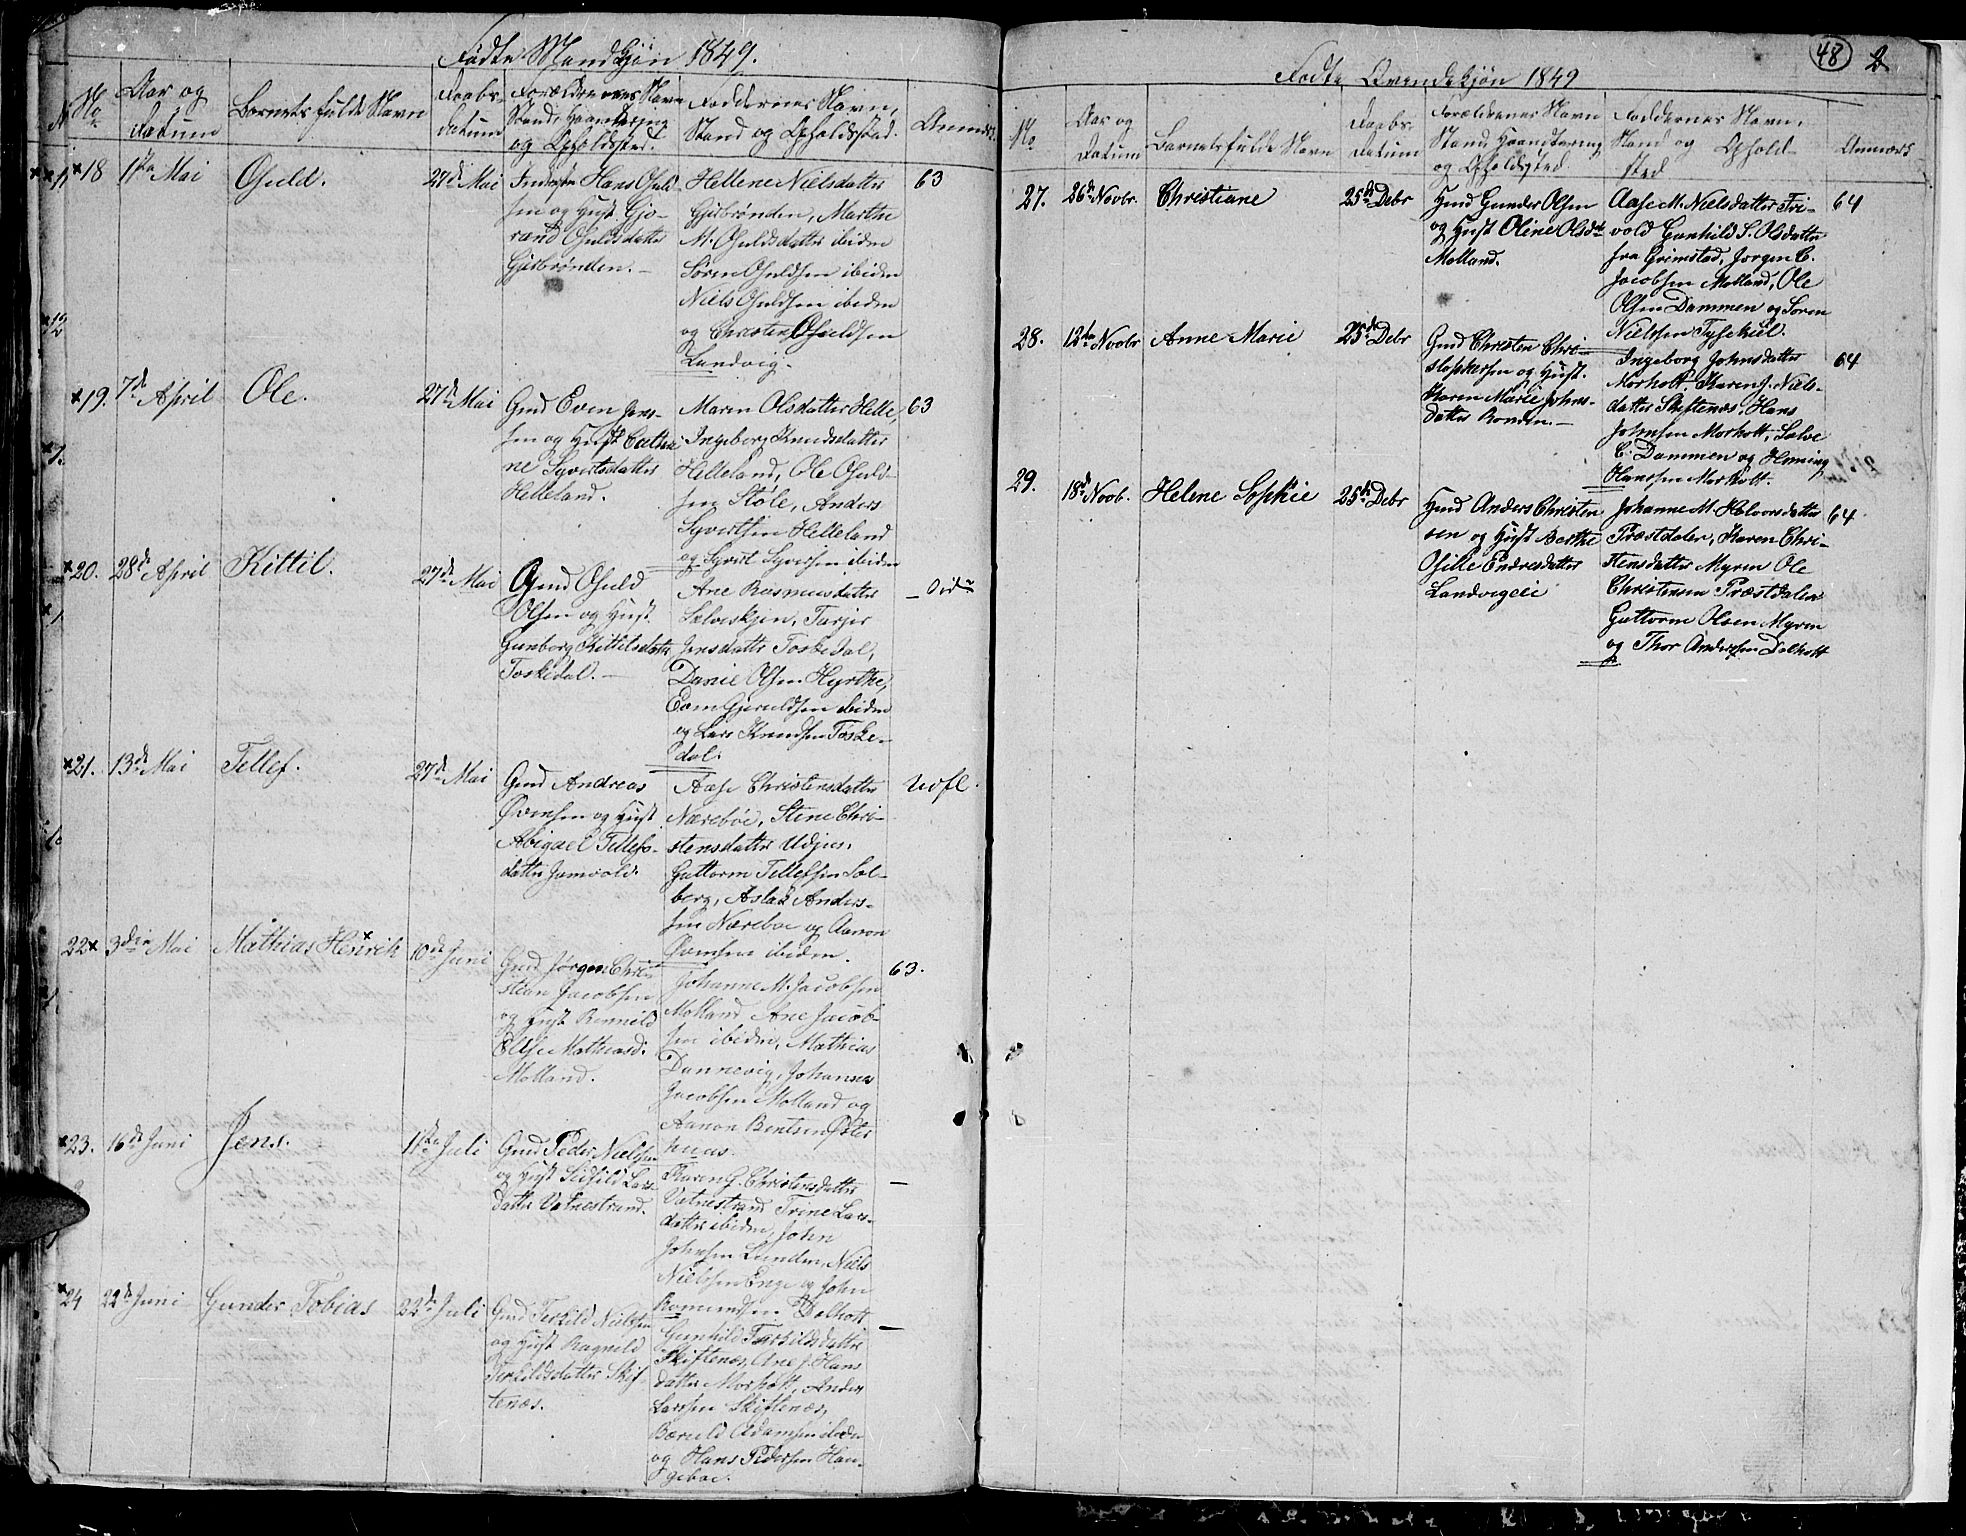 Fødte Mandkjøn 1849.
No
Aar og Datum
Barnets fulde Navn
Daabs-
datum
Forældrenes Navn
Stand, Haandtering
og Opholdsted.
Faddernes Navn,
Stand og Opholdsted.
Anmærk.
18
1ste Mai
Osuld.
27de Mai
Hans Osuld-
sen og Hust. Gjo-
rand Osuldsdatter
Gjisbrønden.
Hellene Nielsdatter
Gjisbrønden, Marthe
M. Osuldsdatter ibidem
Søren Osuldsen ibidem
Niels Osuldsen ibidem
og Christen Osuldsen
Landvig.
63
19.
7de April
Ole.
27de Mai
Gmd Even Jens-
sen og Hust Cathri-
ne Syvertsdatter
Helleland.
Maren Olsdatter Helle,
Ingeborg Knudsdatter
Helleland, Ole Osuld-
sen Støle, Anders
Syvertsen Helleland
og Syvert Syversen ibidem
63
20.
28de April
Kittil.
27de Mai
Gmd Osuld
Olsen og Hust.
Gunborg Kittilsdatter
Toskedal.
Ane Rasmusdatter
Salveskjen, Tarjer
Jensdatter Toskedal,
Daniel Olsen Hyrthe,
Even Gjeruldsen ibidem
og Lars Knudsen Toske-
dal.
21.
13de Mai
Tellef.
27de Mai
Gmd Andreas
Øvensen og Hust
Abigael Tellefs-
datter Jamvold.
Aase Christensdatter
Nærebøe, Stine Chri-
stensdatter Udjus,
Guttorm Tellefsen Sol-
berg, Aslak Anders-
sen Nærebøe og Aanon
Øvensen ibidem.
22
3die Mai
Mathias Henrik
10de Juni
Gmd Jørgen Chri-
stian Jacobsen
og Hust
Else Mathiasd.
Molland.
Johanne M. Jacobsen
Molland Ane Jacob-
sen ibidem, Mathias
Dannevig, Johannes
Jacobsen Molland og
Aanon Bentsen Øster
huus.
63.
23.
16de Juni
Jens.
11te Juli
Gmd Peder Nielsen
og Hust Lars-
datter Vatnestrand.
Karen G. Christensdatter
Vatnestrand Trine Lars-
datter ibidem, John
Johnsen Lunden, Niels
Nielsen Enge og John
Romundsen Dalholt
24
22de Juni
Gunder Tobias
22de Juli
Gmd Terkild Nielsen
og Hust Ragnild
Terkildsdatter Skif-
tenæs.
Gunhild Terkildsdatter
Skiftenæs, Ane J. Hans
datter Morholt, Anders
Larssen Skiftenæs,
Bæruld Adamsen ibidem
og Hans Pedersen Hau-
gebøe.
48
2
Fødte Qvindekjøn 1849
No
Aar og
Datum
Barnets fulde Navn
Daabs-
Datum
Forældrenes Navn
Stand, Haandtering
og Opholdsted
Faddernes Navn,
Stand og Ophold-
sted
Anmærk
27.
26de Novbr.
Christiane
25de Debr
Gmd Gunder Olsen
og Hust Oline Olsdtr
Molland.
Aase M. Nielsdatter Fri-
vold Gunhild S. Olsdatter
fra Grimstad, Jørgen C.
Jacobsen Molland, Ole
Olsen Dammen og Søren
Nielssen Tysekiil.
64
28.
12te Novbr
Anne Marie
25de Debr
Gmd Christen Chri-
stophersen og Hust.
Karen Marie Johns-
datter Ronden.
Ingeborg Johnsdatter
Morholt Karen J. Niels-
datter Skiftenæs, Hans
Johnsen Morholt, Salve
C. Dammen og Heming
Hanssen Morholt.
64
29.
18de Novb.
Helene Sophie
25de Debr
Gmd Anders Christen
sen og Hust Berthe
Osille Endresdatter
Landvigeie
Johanne M. Halvorsdatter
Præstdalen, Karen Chri-
stensdatter Myren Ole
Christensen Præstdalen
Guttorm Olsen Myren
og Thor Andersen Dalholt
64